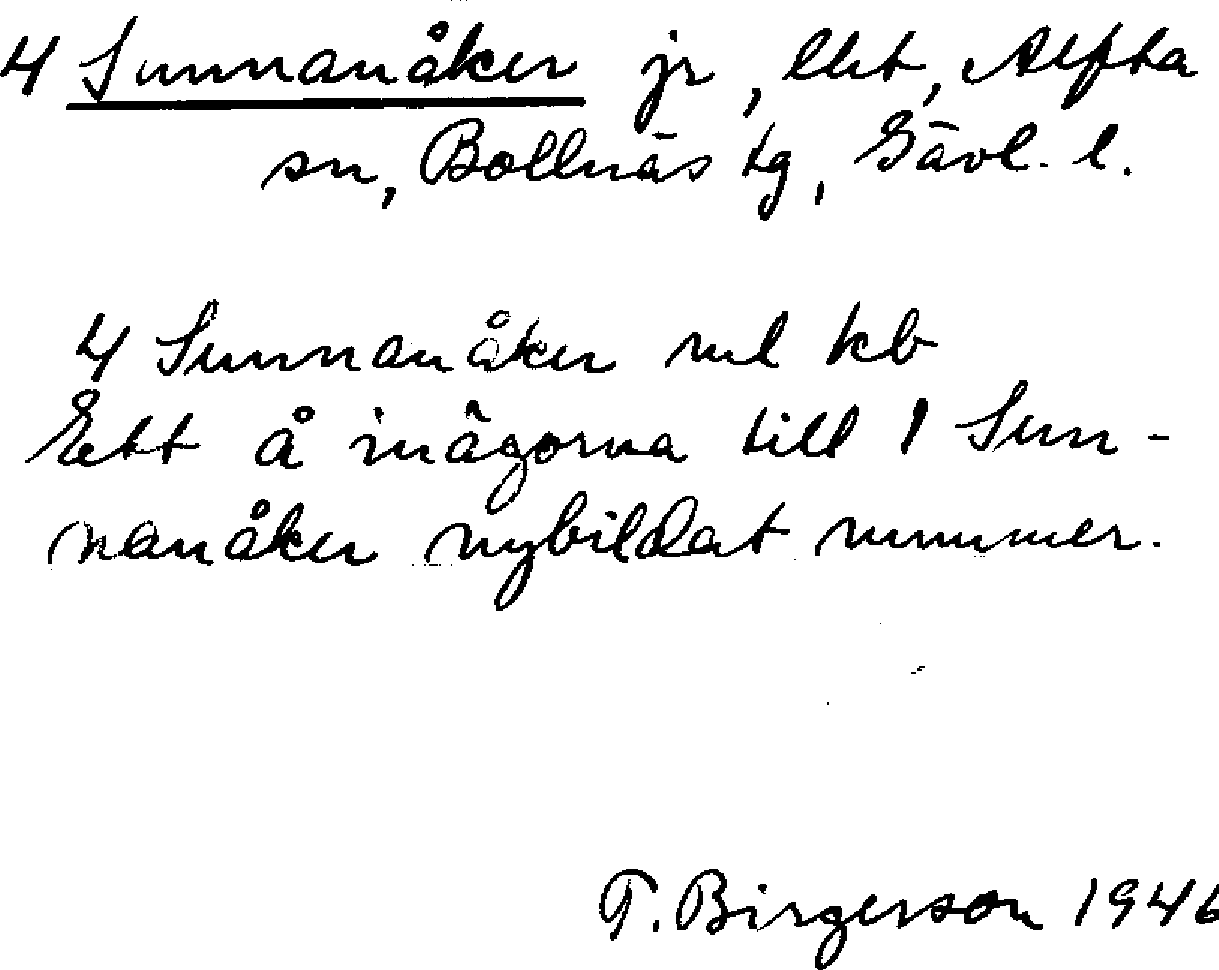 4 Sunnanåker jr, lht, Alfta
sn, Bollnäs tg, Gävl. l.
4 Sunnanåker ml kb
Ett å inägorna till 1 Sun-
nanåker nybildat nummer.
T. Birgerson 1946